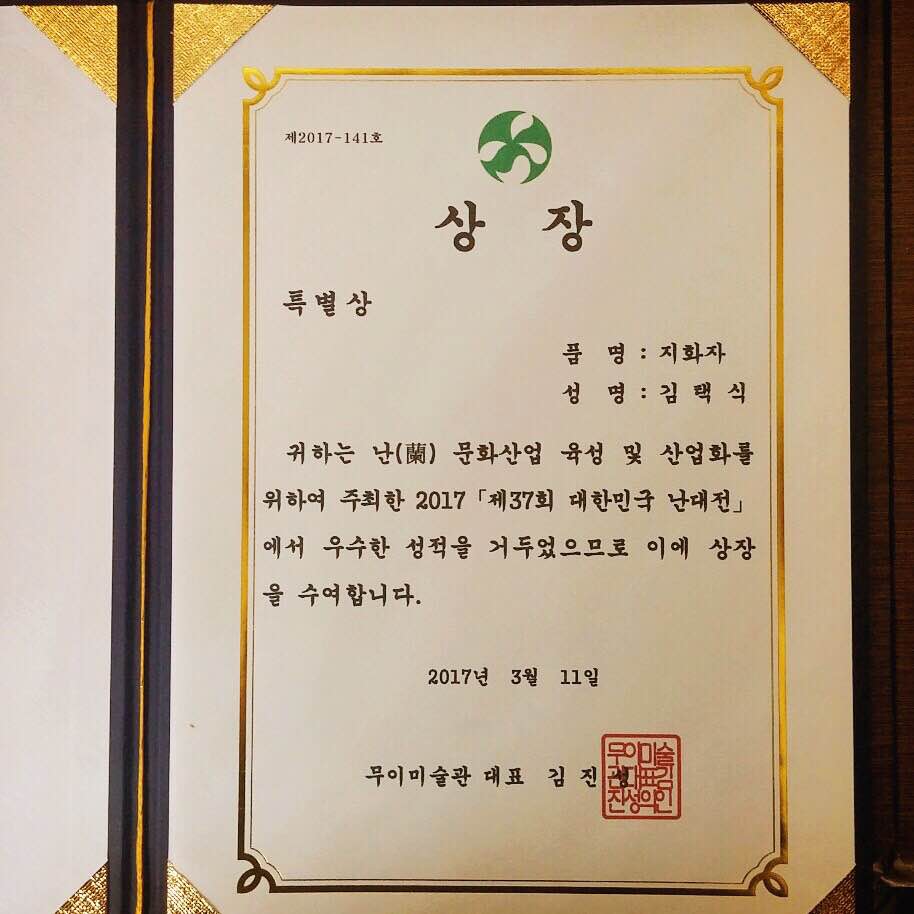 제2017-141호
상 장
특별상
품 명 : 지화자
성 명 : 김 택 식
귀하는 난(蘭) 문화산업 육성 및 산업화를
위하여 주최한 2017 「제37회 대한민국 난대전」
에서 우수한 성적을 거두었으므로 이에 상장
을 수여합니다.
2017년 3월 11일
무이미술관 대표 김 진 성
무이미술
관대표김
진성의인